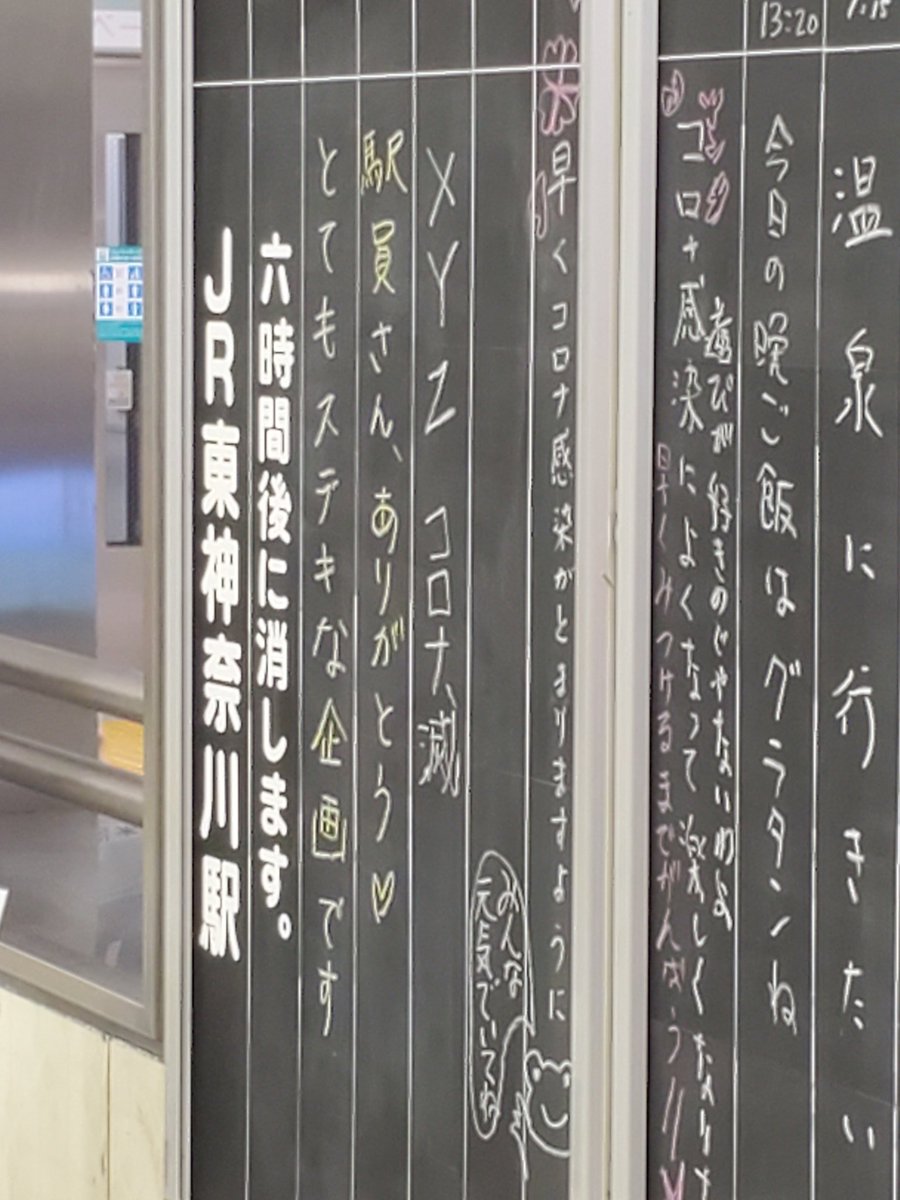 13:20
温泉に行きたい
今日の晩ご飯はグラタンね
遊びが好きのじゃないわよ
コロナ感染によくなって楽しくなりた
早くみつけるまでがんばろう!!
早くコロナ感染がとまりますように
みんな
元気でいてね
XYZ コロナ、滅
駅員さん、ありがとう♡
とてもステキな企画です
六時間後に消します。
JR東神奈川駅